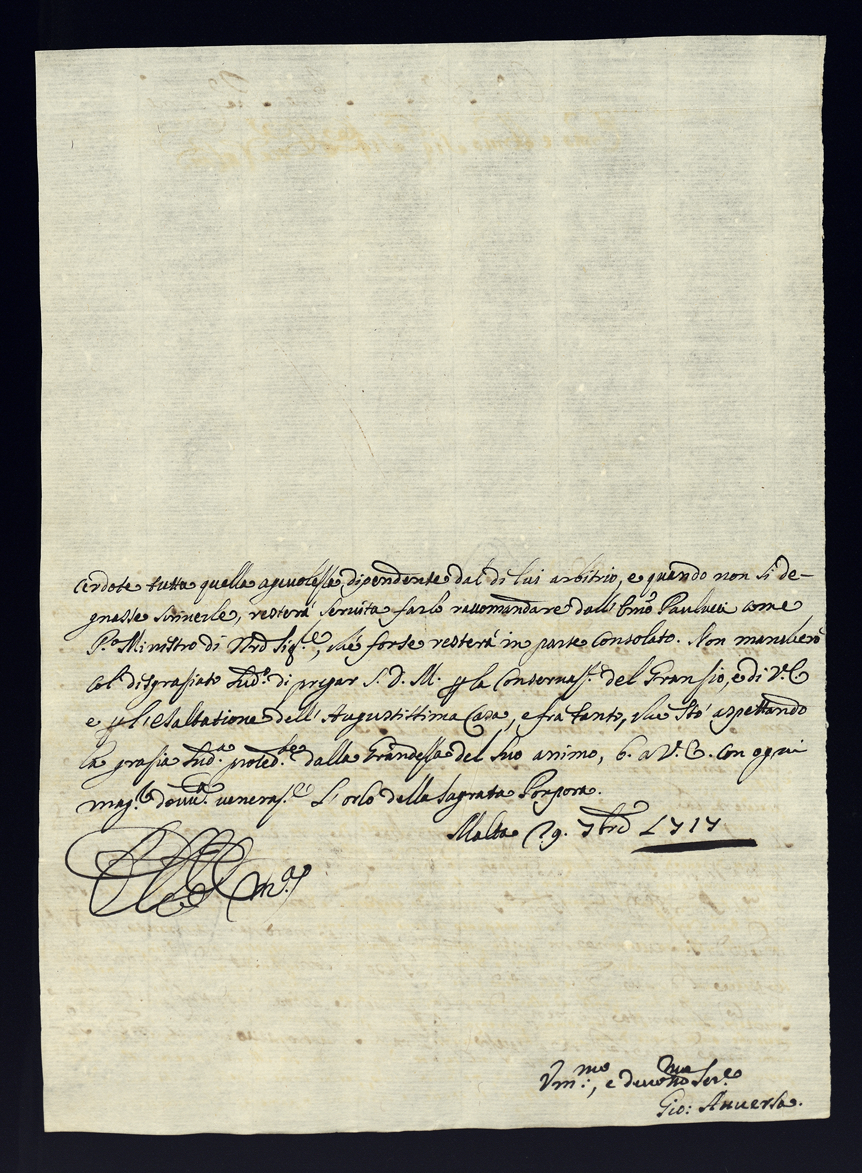 cerdote tutta quella agevolezza dipendente dal di lui arbitrio, e quando non si de-
gnasse scriverle, resterà servita farlo raccomandare dall' Em.o Paulucci come
P.o Ministro di Nro Sig.e, chè forse resterà in parte consolato. Non mancherò
col disgraziato Sud.o di pregar S. D. M. per la Conservaz.e del Granzio, e di V. E.
e per l'esaltatione dell' Augustissima Casa, e frà tanto, che stò aspettando
la grazia Sud.a dalla Grandezza del suo animo, b. a V. E. con ogni
mag.r venera.e l'orlo della Sagrata Porpora.
Malta 29. 7bre 1717
Vm.mo, e devo.mo Ser.e
Gio: Anversa.